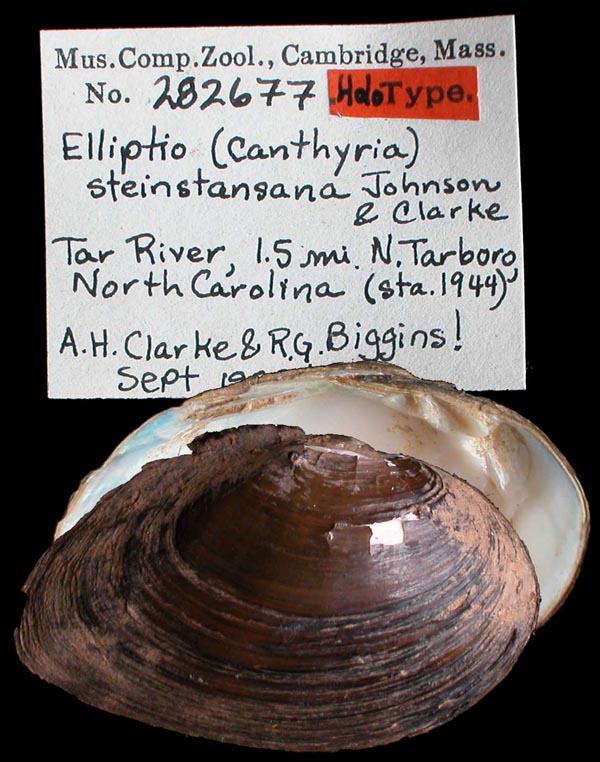 Mus. Comp. Zool., Cambridge, Mass.
No. 282677 HoloType.
Elliptio (Canthyria)
steinstansana Johnson
& Clarke
Tar River, 1.5 mi. N. Tarboro,
North Carolina (sta. 1944)
A.H. Clarke & R.G. Biggins!
Sept